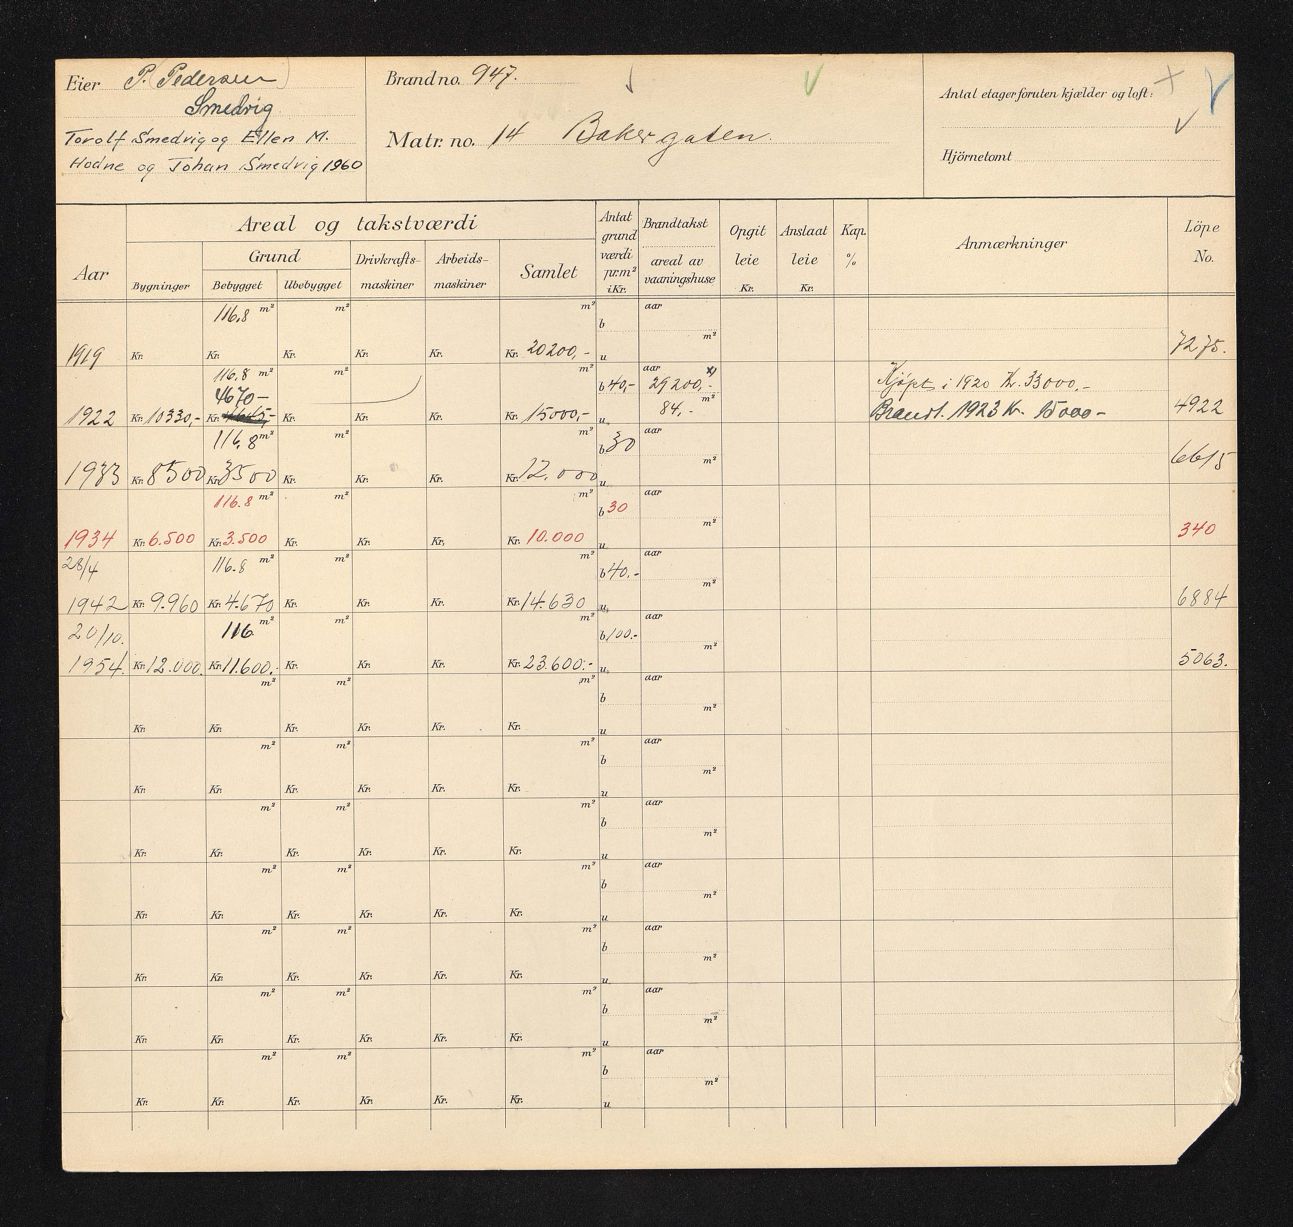 Eier P. (Pedersen)
Smedvig
Torolf Smedvig og Ellen M.
Hodne og Johan Smedvig 1960
Brand no. 947.
Matr. no. 14 Bakergaten
Antal etager foruten kjælder og loft:
Hjörnetomt
Aar
Areal og takstværdi
Bygninger
Grund
Bebygget
Ubebygget
Drivkraftsmaskiner
Arbeidsmaskiner
Samlet
Antat grundværdi pr. m² i Kr.
Brandtakst
areal av vaaningshuse
Opgit leie Kr.
Anslaat leie Kr.
Kap. %
Anmærkninger
Löpe No.
116.8 m² m² m² b aar
1919 Kr. Kr. Kr. Kr. Kr. Kr. 20200,- u m² 7275.
116.8 m² m² m² b 40,- aar 29200,- x) Kjøpt i 1920 Kr. 33000,-
4670-
1922 Kr. 10330,- Kr. Kr. Kr. Kr. Kr. 15000,- u 84,- m² Brandt. 1923 Kr. 15000- 4922
116,8 m² m² m² b 30 aar
1933 Kr. 8500 Kr. 3500 Kr. Kr. Kr. Kr. 12.000 u m² 6615
116.8 m² m² m² b 30 aar
1934 Kr. 6.500 Kr. 3.500 Kr. Kr. Kr. Kr. 10.000 u m² 340
28/4 116.8 m² m² m² b 40.- aar
1942 Kr. 9.960 Kr. 4.670 Kr. Kr. Kr. Kr. 14.630 u m² 6884
20/10. 116 m² m² m² b 100.- aar
1954. Kr. 12.000. Kr. 11.600.- Kr. Kr. Kr. Kr. 23.600.- u m² 5063.
m² m² m² b aar
Kr. Kr. Kr. Kr. Kr. Kr. u m²
m² m² m² b aar
Kr. Kr. Kr. Kr. Kr. Kr. u m²
m² m² m² b aar
Kr. Kr. Kr. Kr. Kr. Kr. u m²
m² m² m² b aar
Kr. Kr. Kr. Kr. Kr. Kr. u m²
m² m² m² b aar
Kr. Kr. Kr. Kr. Kr. Kr. u m²
m² m² m² b aar
Kr. Kr. Kr. Kr. Kr. Kr. u m²
m² m² m² b aar
Kr. Kr. Kr. Kr. Kr. Kr. u m²